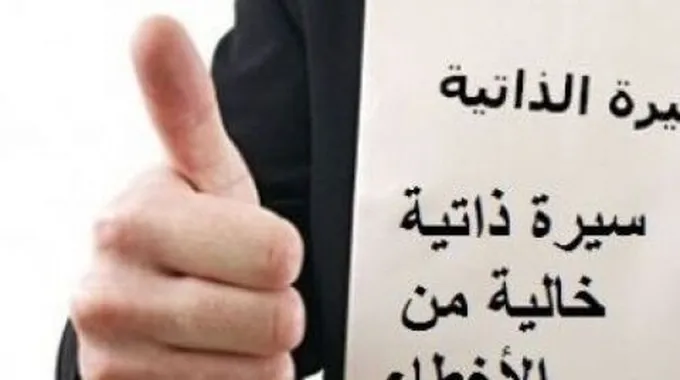 يرة الذاتية
سيرة ذاتية
خالية من
الأخطاء